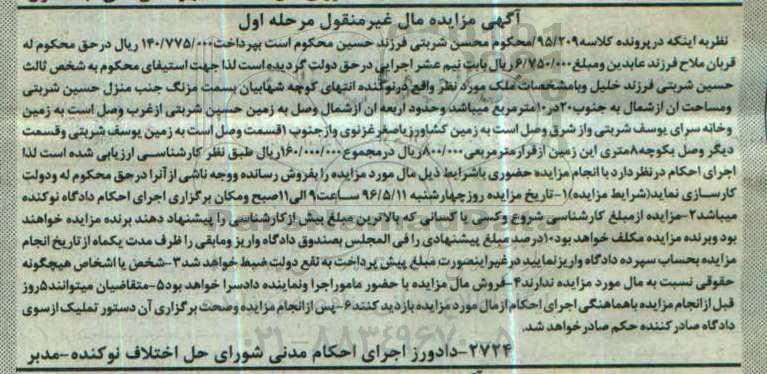 آگهی مزایده مال غیرمنقول مرحله اول
نظربه اینکه درپرونده کلاسه۹۵/۲۰۹/محکوم محسن شربتی فرزند حسین محکوم است بپرداخت۱۴۰/۷۷۵/۰۰۰ ریال درحق محکوم له
قربان ملاح فرزند عابدین ومبلغ۶/۷۵۰/۰۰۰ریال بابت نیم عشر اجرایی درحق دولت گردیده است لذا جهت استیفای محکوم به شخص ثالث
حسین شربتی فرزند خلیل وبامشخصات ملک مورد نظر واقع درنوکنده انتهای کوچه شهابیان بسمت مزنگ جنب منزل حسین شربتی
ومساحت ان ازشمال به جنوب۲۰در۱۰مترمربع میباشد وحدود اربعه ان ازشمال وصل به زمین حسین شربتی ازغرب وصل است به زمین
وخانه سرای یوسف شربتی واز شرق وصل است به زمین کشاورزیاصغرغزنوی وازجنوب ۱قسمت وصل است به زمین یوسف شربتی وقسمت
دیگر وصل بکوچه۸متری این زمین ازقرارمترمربعی۸۰۰/۰۰۰ریال درمجموع۱۶۰/۰۰۰/۰۰۰ریال طبق نظر کارشناسی ارزیابی شده است لذا
اجرای احکام درنظردارد با انجام مزایده حضوری باشرایط ذیل مال مورد مزایده را بفروش رسانده ووجه ناشی ازآنرا درحق محکوم له ودولت
کارسازی نماید(شرایط مزایده)۱-تاریخ مزایده روزچهارشنبه ۹۶/۵/۱۱ ساعت۹الی۱۱صبح ومکان برگزاری اجرای احکام دادگاه نوکنده
میباشد۲-مزایده ازمبلغ کارشناسی شروع وکسی یا کسانی که بالاترین مبلغ بیش ازکارشناسی را پیشنهاد دهند برنده مزایده خواهند
بود وبرنده مزایده مکلف خواهد بود۱۰درصدمبلغ پیشنهادی را فی المجلس بصندوق دادگاه واریز ومابقی را ظرف مدت یکماه ازتاریخ انجام
مزایده بحساب سپرده دادگاه واریزنمایید درغیراینصورت مبلغ پیش پرداخت به نفع دولت ضبط خواهد شد۳-شخص یا اشخاص هیچگونه
حقوقی نسبت به مال مورد مزایده ندارند۴-فروش مال مزایده با حضور ماموراجرا ونماینده دادسرا خواهد بود۵-متقاضیان میتوانند۵روز
قبل ازانجام مزایده باهماهنگی اجرای احکام ازمال مورد مزایده بازدید کنند۶-پس ازانجام مزایده وصحت برگزاری آن دستور تملیک ازسوی
دادگاه صادرکننده حکم صادرخواهد شد.
۲۷۲۴-دادورز اجرای احکام مدنی شورای حل اختلاف نوکنده-مدبر